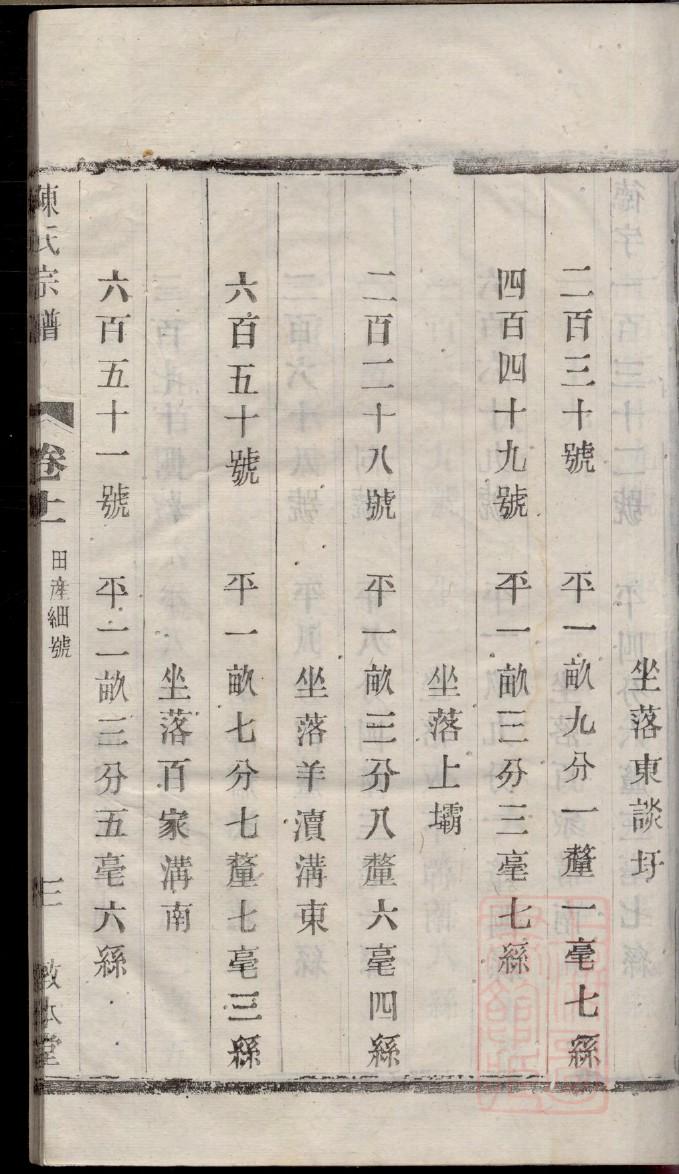 坐落東談圩
二百三十號 平一畝九分一釐一毫七絲
四百四十九號 平一畝三分三毫七絲
坐落上壩
二百二十八號 平一畝三分八釐六毫四絲
坐落羊瀆溝東
六百五十號 平一畝七分七釐七毫三絲
坐落百家溝南
六百五十一號 平二畝三分五毫六絲
陳氏宗譜 卷上 田產細號 三 敦本堂